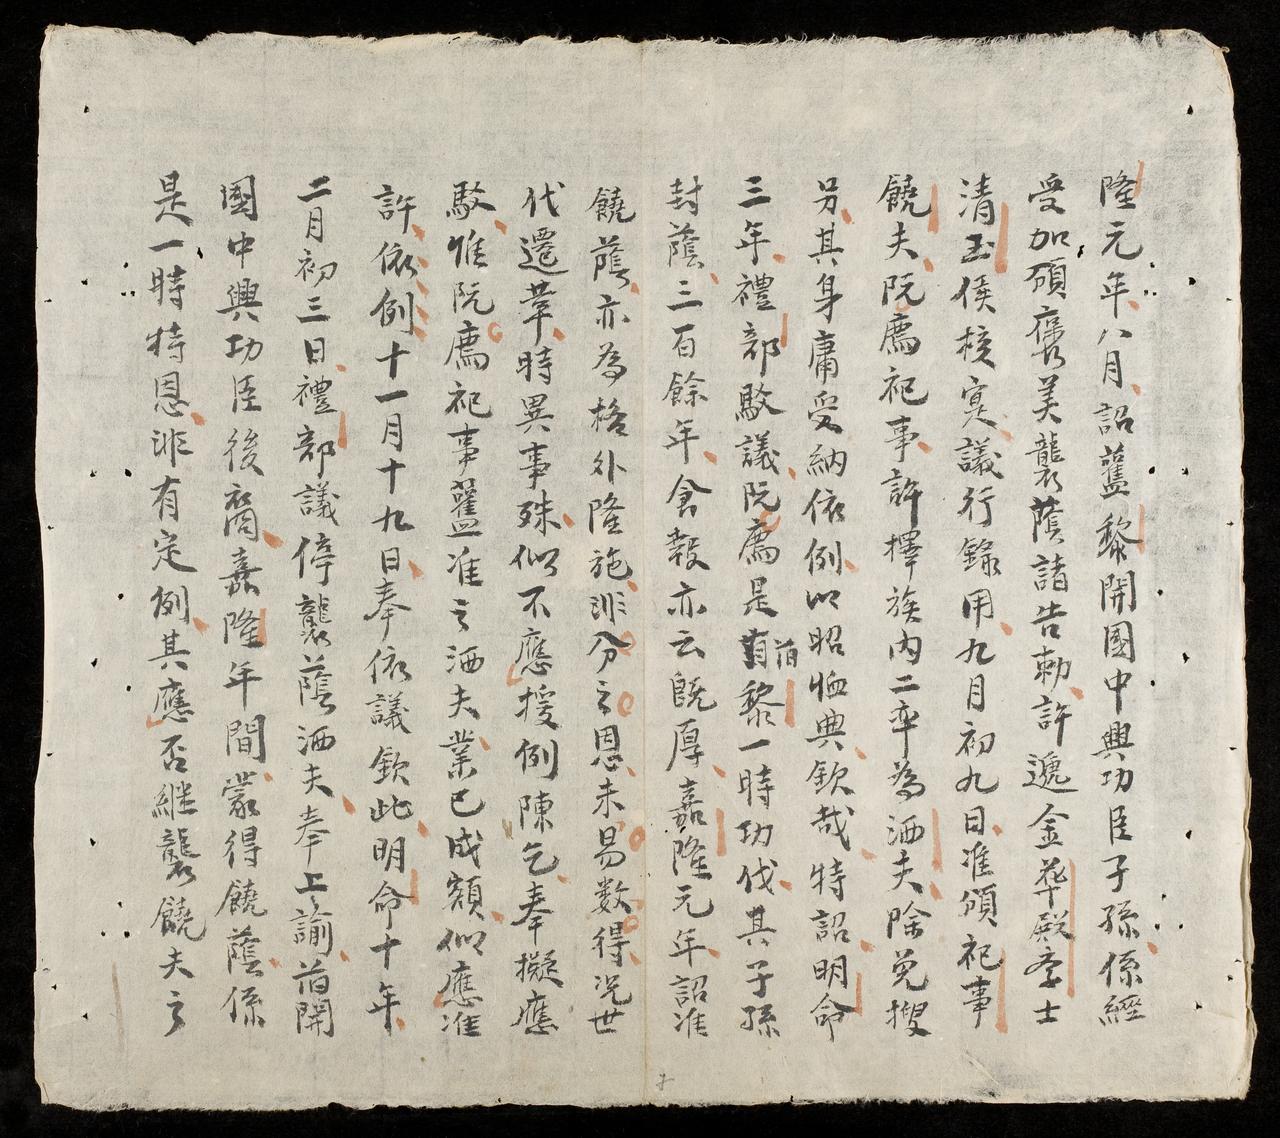 隆元年八月詔舊黎開國中興功臣子孫係經
受加碩舊美襲蔭諸告勅許遞金華殿李士
清玉侯核寔議行錄用九月初九日准頒祀事
饒夫阮廌祀事許擇族內二率為洒夫除免搜
另其身庸受納依例以昭恤典欽哉特詔明命
三年禮部駁議阮廌是前黎一時功伐其子孫
封蔭三百餘年食報亦云既厚嘉隆元年詔准
饒蔭亦為格外隆施非分之恩未易数得况世
代遷革時異事殊似不應援例陳乞奉擬應
駁惟阮廌祀事舊准之洒夫業已成額似應准
許依例十一月十九日奉依議欽此明命十年
二月初三日禮部議停襲蔭洒夫奉上諭前開
國中興功臣後裔嘉隆年間蒙得饒蔭係
是一時特恩非有定例其應否継襲饒夫之